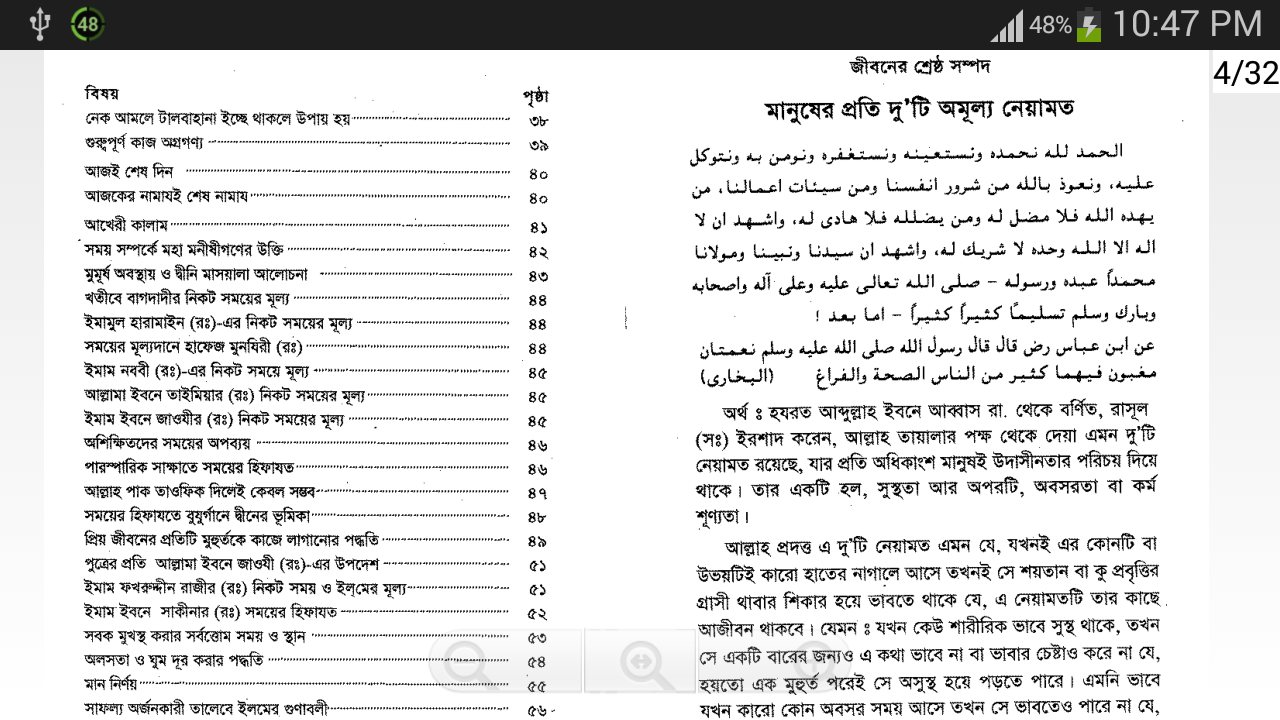 48
48%
10:47 PM
4/32
বিষয় পৃষ্ঠা
নেক আমলে টালবাহানা ইচ্ছে থাকলে উপায় হয় ৩৮
গুরুত্বপূর্ণ কাজ অগ্রগণ্য ৩৯
আজই শেষ দিন ৪০
আজকের নামাযই শেষ নামায ৪০
আখেরী কালাম ৪১
সময় সম্পর্কে মহা মনীষীগণের উক্তি ৪২
মুমূর্ষ অবস্থায় ও দ্বীনি মাসয়ালা আলোচনা ৪৩
খতীবে বাগদাদীর নিকট সময়ের মূল্য ৪৪
ইমামুল হারামাইন (রঃ)-এর নিকট সময়ের মূল্য ৪৪
সময়ের মূল্যদানে হাফেজ মুনযিরী (রঃ) ৪৪
ইমাম নববী (রঃ)-এর নিকট সময়ে মূল্য ৪৫
আল্লামা ইবনে তাইমিয়ার (রঃ) নিকট সময়ের মূল্য ৪৫
ইমাম ইবনে জাওযীর (রঃ) নিকট সময়ের মূল্য ৪৫
অশিক্ষিতদের সময়ের অপব্যয় ৪৬
পারস্পারিক সাক্ষাতে সময়ের হিফাযত ৪৬
আল্লাহ পাক তাওফিক দিলেই কেবল সম্ভব ৪৭
সময়ের হিফাযতে বুযুর্গানে দ্বীনের ভূমিকা ৪৮
প্রিয় জীবনের প্রতিটি মুহুর্তকে কাজে লাগানোর পদ্ধতি ৪৯
পুত্রের প্রতি আল্লামা ইবনে জাওযী (রঃ)-এর উপদেশ ৫১
ইমাম ফখরুদ্দীন রাজীর (রঃ) নিকট সময় ও ইল্‌মের মূল্য ৫১
ইমাম ইবনে সাকীনার (রঃ) সময়ের হিফাযত ৫২
সবক মুখস্থ করার সর্বত্তোম সময় ও স্থান ৫৩
অলসতা ও ঘুম দূর করার পদ্ধতি ৫৪
মান নির্ণয় ৫৫
সাফল্য অর্জনকারী তালেবে ইলমের গুণাবলী ৫৬
জীবনের শ্রেষ্ঠ সম্পদ
মানুষের প্রতি দু'টি অমূল্য নেয়ামত
الحمد لله نحمده ونستعينه ونستغفره ونومن به ونتوكل
عليه، ونعوذ بالله من شرور انفسنا ومن سيئات اعمالنا، من
يهده الله فلا مضل له ومن يضلله فلا هادى له، واشهد ان لا
اله الا الله وحده لا شريك له، واشهد ان سيدنا ونبينا ومولانا
محمداً عبده ورسوله – صلى الله تعالى عليه وعلى آله واصحابه
وبارك وسلم تسليمًا كثيراً كثيراً – اما بعد !
عن ابن عباس رض قال قال رسول الله صلى الله عليه وسلم نعمتان
مغبون فيهما كثير من الناس الصحة والفراغ (البخارى)
অর্থ ঃ হযরত আব্দুল্লাহ ইবনে আব্বাস রা. থেকে বর্ণিত, রাসূল
(সঃ) ইরশাদ করেন, আল্লাহ তায়ালার পক্ষ থেকে দেয়া এমন দু'টি
নেয়ামত রয়েছে, যার প্রতি অধিকাংশ মানুষই উদাসীনতার পরিচয় দিয়ে
থাকে। তার একটি হল, সুস্থতা আর অপরটি, অবসরতা বা কর্ম
শূণ্যতা।
আল্লাহ প্রদত্ত এ দু'টি নেয়ামত এমন যে, যখনই এর কোনটি বা
উভয়টিই কারো হাতের নাগালে আসে তখনই সে শয়তান বা কু প্রবৃত্তির
গ্রাসী থাবার শিকার হয়ে ভাবতে থাকে যে, এ নেয়ামতটি তার কাছে
আজীবন থাকবে। যেমন ঃ যখন কেউ শারীরিক ভাবে সুস্থ থাকে, তখন
সে একটি বারের জন্যও এ কথা ভাবে না বা ভাবার চেষ্টাও করে না যে,
হয়তো এক মুহুর্ত পরেই সে অসুস্থ হয়ে পড়তে পারে। এমনি ভাবে
যখন কারো কোন অবসর সময় আসে তখন সে ভাবতেও পারে না যে,